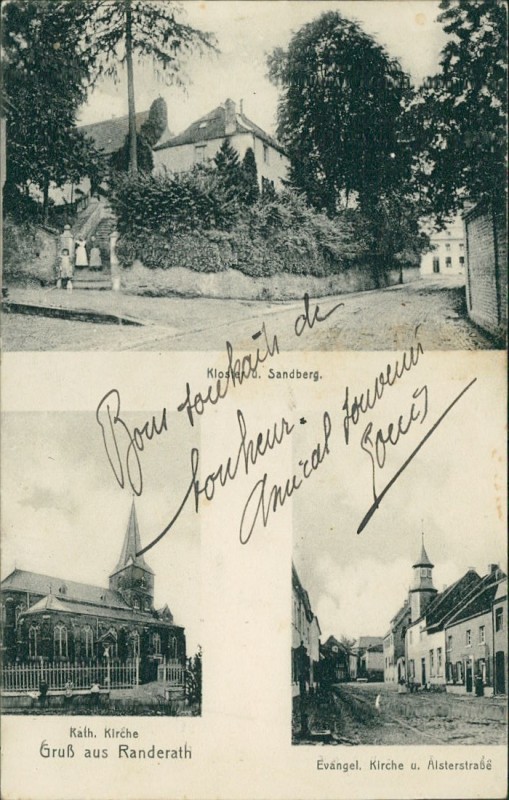 Kloster u. Sandberg.
Bons souhaits de
bonheur.
Amical souvenir
Louis
Kath. Kirche
Gruß aus Randerath
Evangel. Kirche u. Alsterstraße